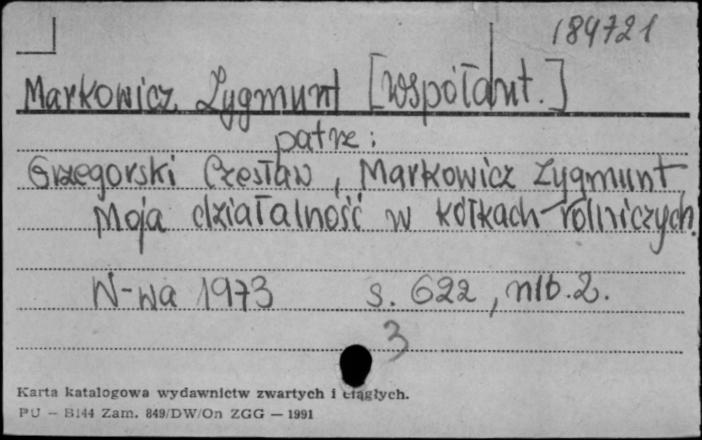 189721
Markowicz Zygmunt [współaut.]
patrz:
Grzegorski Czesław, Markowicz Zygmunt
Moja działalność w kółkach rolniczych.
W-wa 1973 s. 622, nlb. 2.
3
Karta katalogowa wydawnictw zwartych i ciągłych.
PU — B144 Zam. 849/DW/On ZGG — 1991